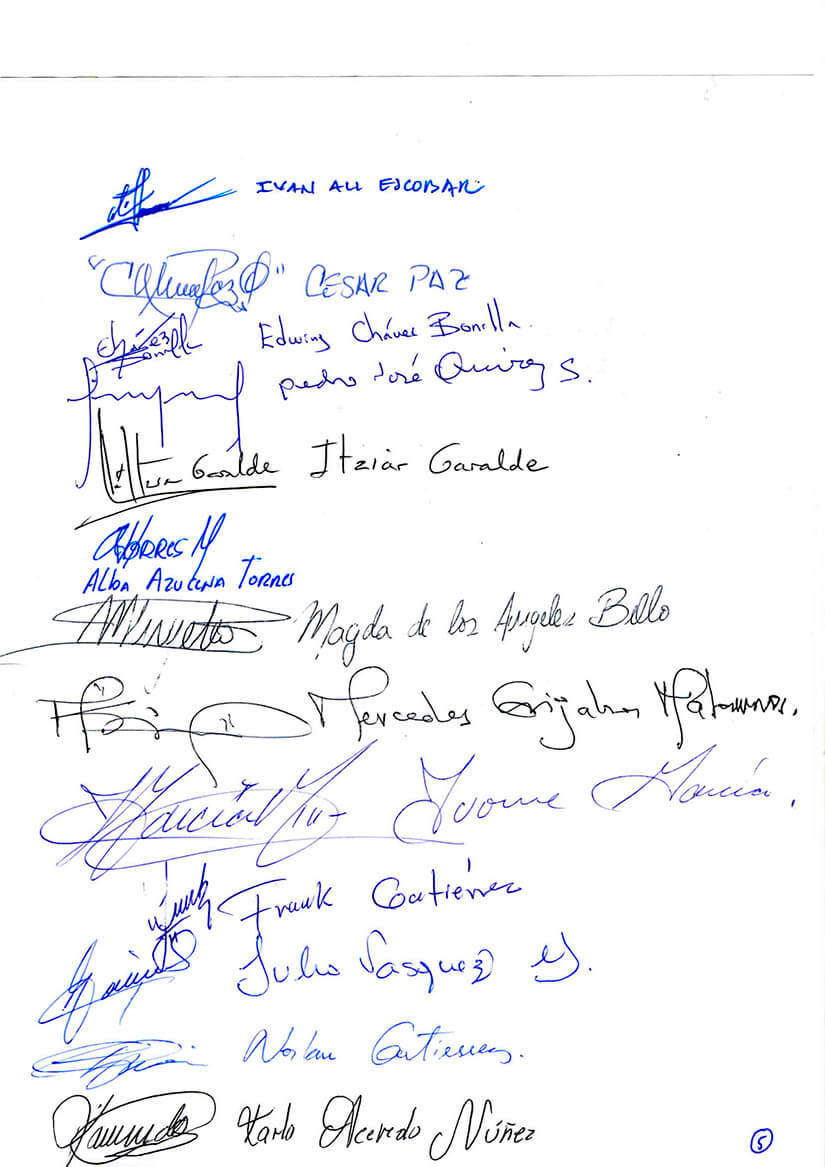 IVAN ALI ESCOBAR
CESAR PAZ
Chávez Bonilla Edwing Chávez Bonilla.
pedro José Quiroz S.
Garalde Itziar Garalde
Torres M
Alba Azucena Torres
Magda de los Angeles Bello
Mercedes Grijalva Matamoros.
García Ivonne García.
Frank Gutiérrez
Julio Vasquez
Norlan Gutierrez.
Karlo Acevedo Núñez
5